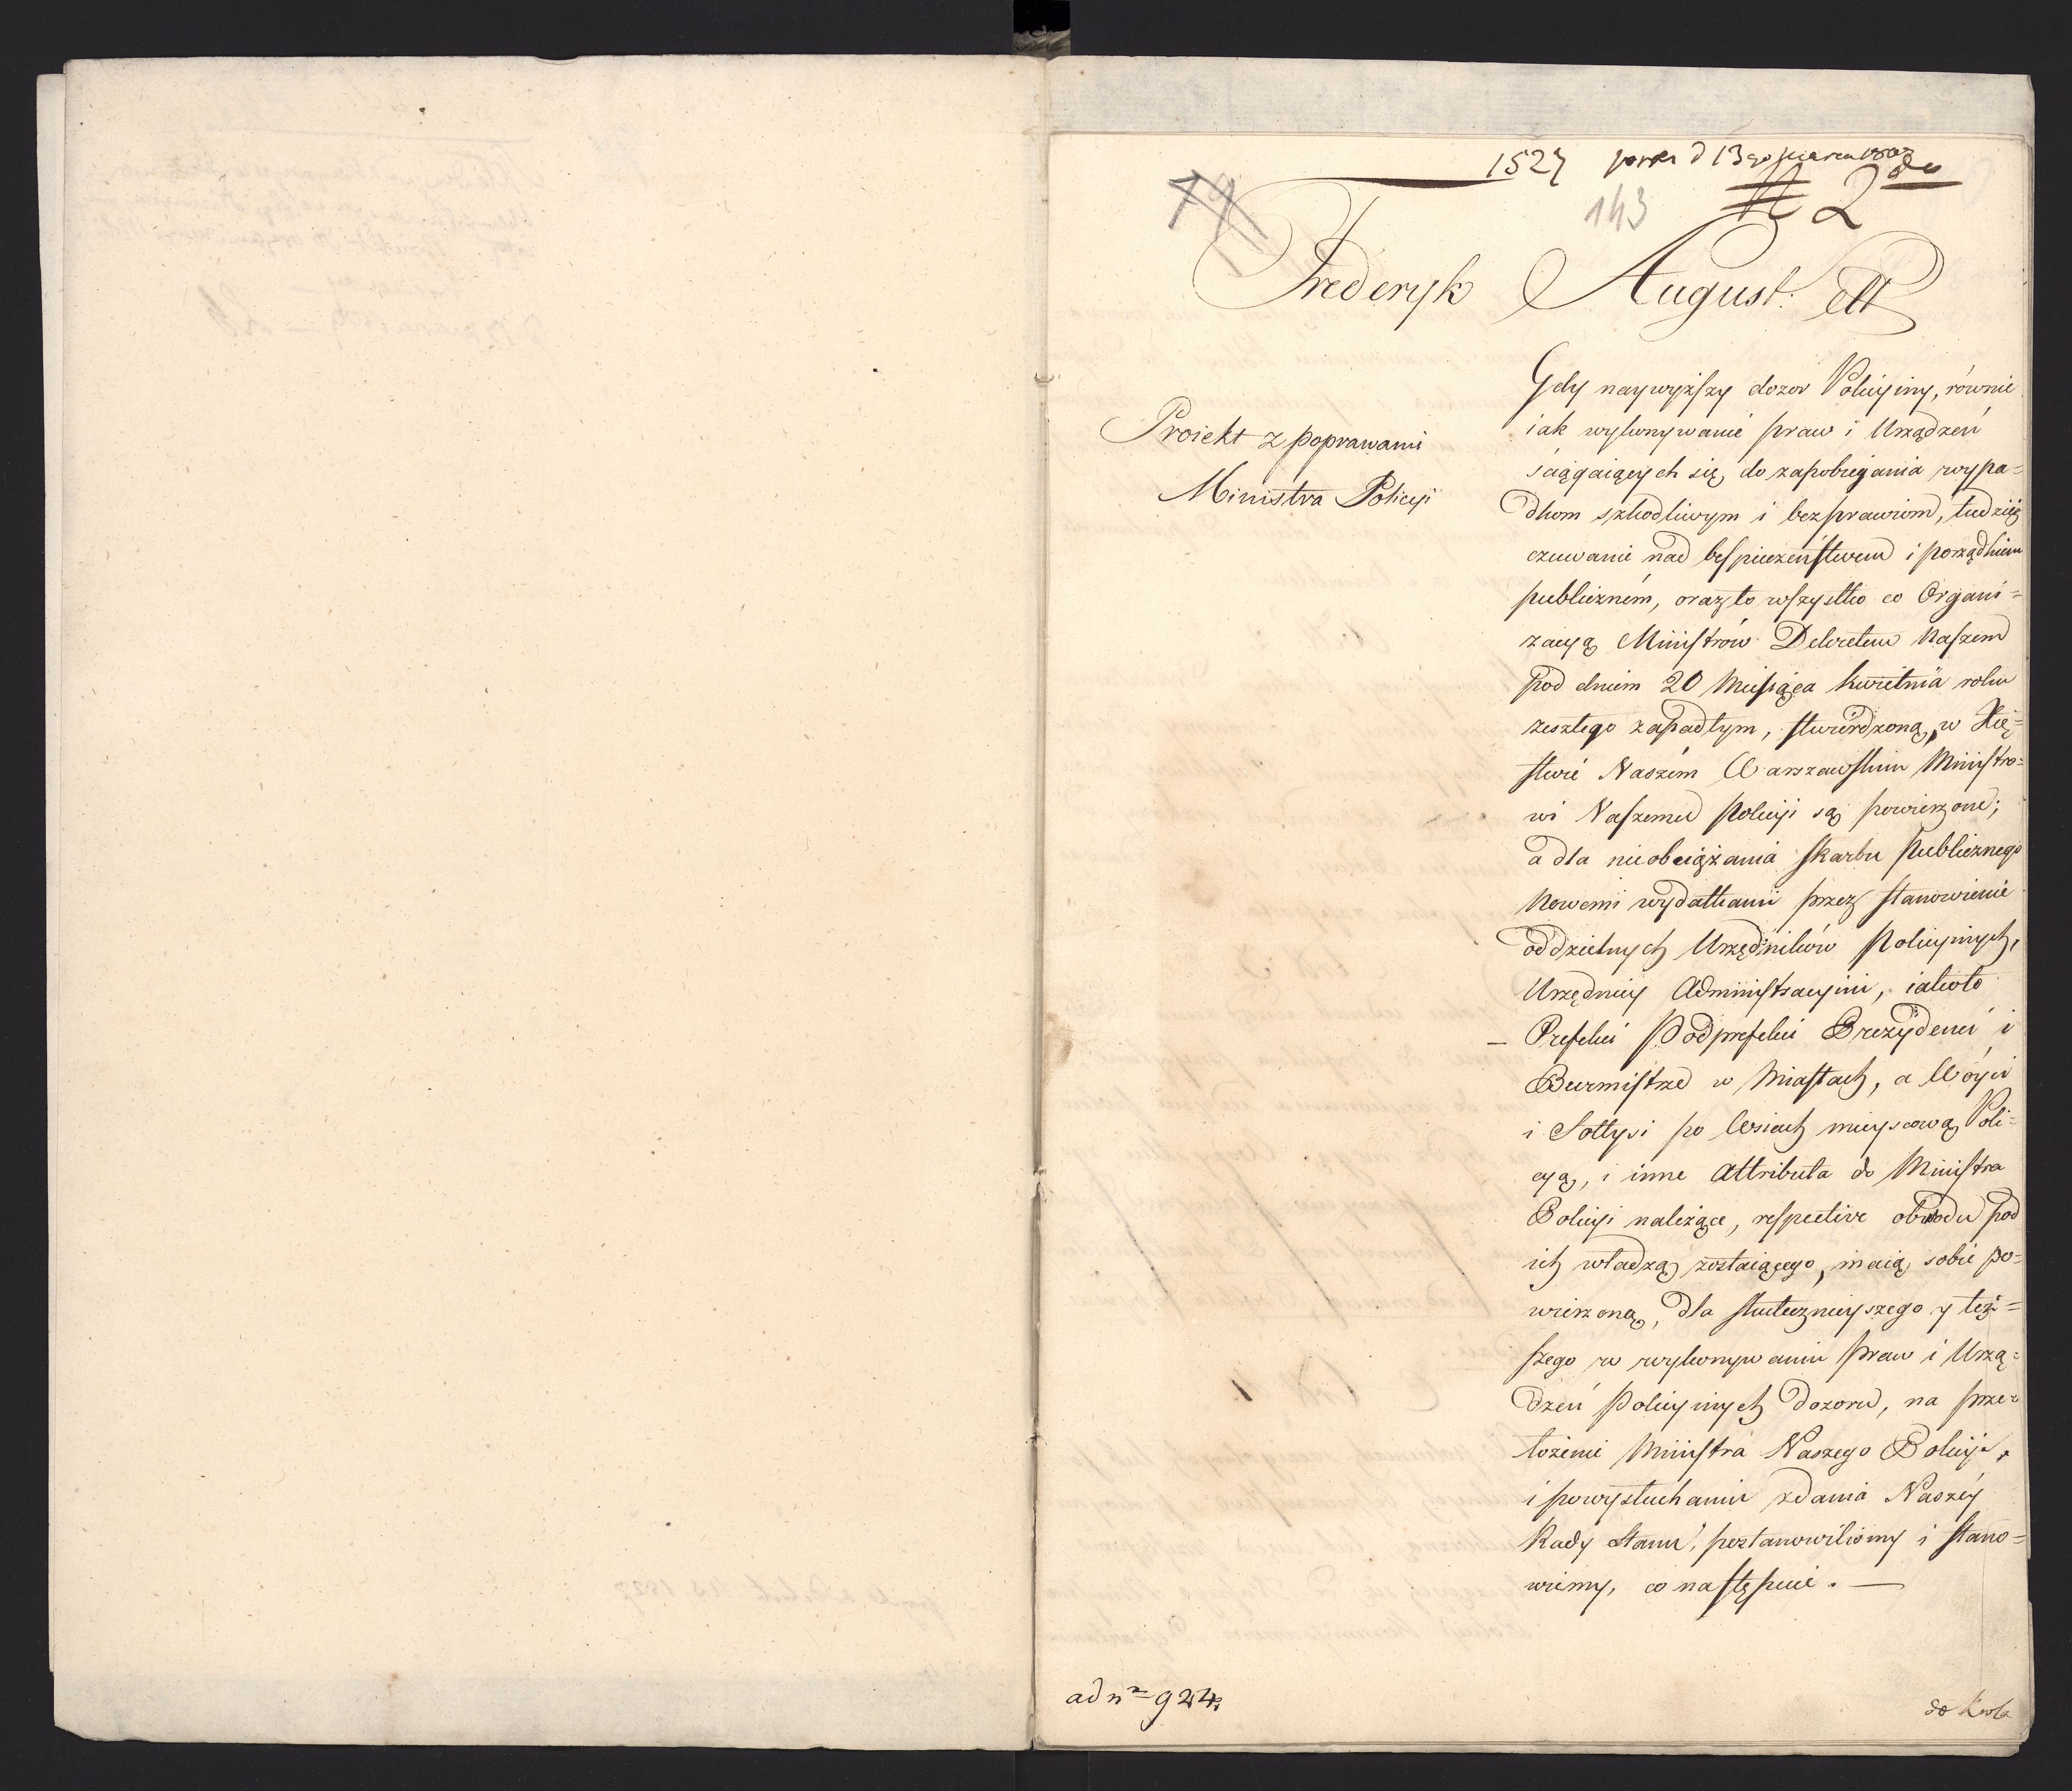 1527
143
N 2do
Frederyk August. ett
Proiekt z poprawami
Ministra Policyi
Gdy naywyższy dozor Policyiny, równie
iak wykonywanie praw i Urządzeń
ściągaiących się, do zapobiegania wypa=
dkom szkodliwym i bezprawiom, tudzież
czuwanie nad bespieczeństwem i porządkiem
publiczném, oraz to wszystko co Organi=
zacyą Ministrów Dekretem Naszem
pod dniem 20 Miesiąca Kwietnia roku
zeszłego zapadłym, stwierdzoną, w Xię=
stwie Naszém Warszawskim Ministro=
wi Naszemu Policyi są powierzone;
a dla nieobciążania skarbu Publicznego
Nowemi wydatkami przez stanowienie
oddzielnych Urzędników Policyinych,
Urzędnicy Administracyini, iakoto
Prefekci Podprefekci Prezydenci i
Burmistrze w Miastach, a Wóyci
i Sołtysi po Wsiach mieyscową Poli=
cyą, i inne Attributa do Ministra
Policyi należące, respective obwodu pod
ich władzą zostaiącego, maią sobie po=
wierzoną, dla skutecznieyszego y tęż=
szego w wykonywaniu Praw i Urzą=
dzeń Policyinych dozoru, na prze=
łożenie Ministra Naszego Policyi,
i powysłuchaniu zdania Naszéy
Rady Stanu, postanowiliśmy i stano=
wiemy, co następuie. —
ad nr 924
do Króla